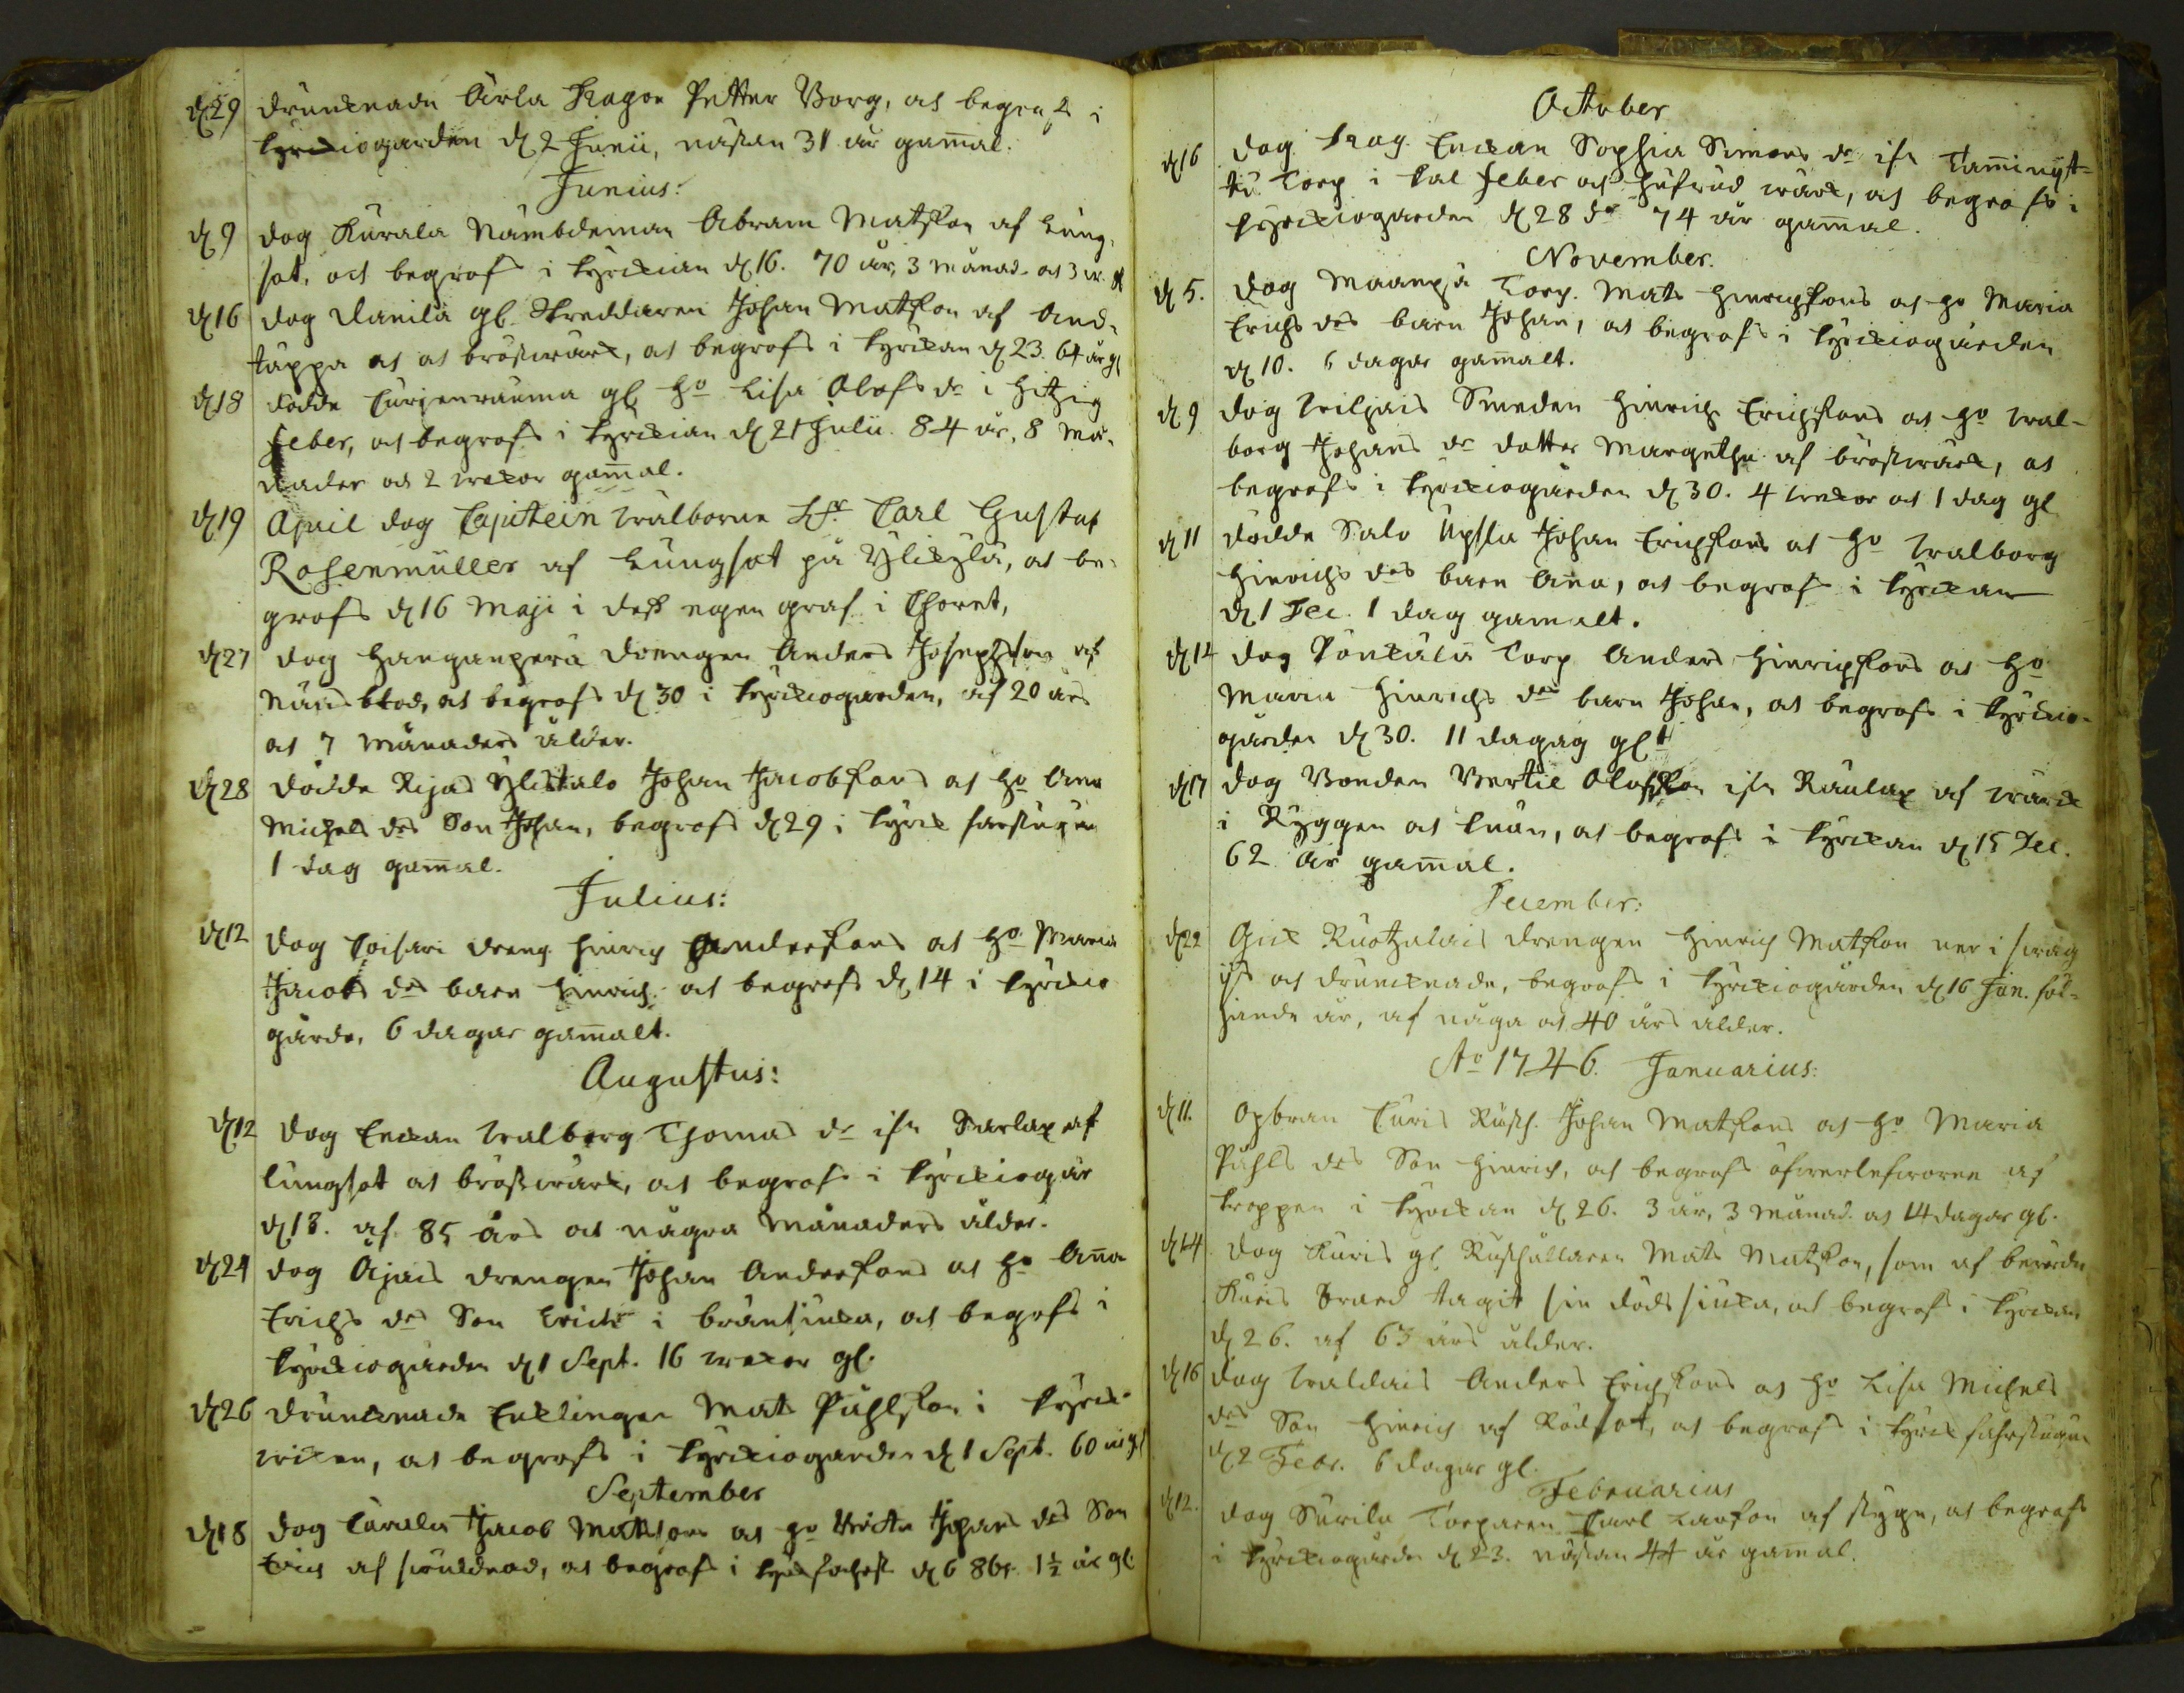 d 29 drunknade Ärla Dragon Petter Borg, och begrofs i
kyrckiogården d 2 Junii, nästan 31 år gamal.
Junius:
d 9 dog Kurala Nämbdeman Abram Matsson af Lung-
sot, och begrofs i kyrckian d 16. 70 år, 3 månad. och 3 w. gl
d 16 dog Danila gl. Skreddaren Johan Matsson af And-
täppa och bröstwärk, och begrofs i kyrckan d 23. 64 år gl
d 18 dödde Kurjenrauma gl. ho Lisa Olofs dr i Hitzig
feber, och begrofs i kyrckian d 21 Julii. 84 år, 8 må-
nader och 2 wekor gamal.
d 19 April dog Capitein wälborne Hr Carl Gustaf
Rosenmüller af Lungsot på Ylikylä, och be-
grofs d 16 Maji i dess egen graf i Choret,
d 27 dog Hanganperä drengen Anders Josephson af
näsblod, och begrofs d 30 i kyrckiogården, af 20 års
och 7 månaders ålder.
d 28 dödde Rijas Ylistalo Johan Jacobsons och ho Anna
Michels drs Son Johan, begrofs d 29 i kyrck farstugun
1 dag gamal.
Julius:
d 12 dog Koisari dreng Hinrich Andersons och ho Maria
Jacobs drs barn Hinrich och begrofs d 14 i kyrckio
gårde, 6 dagar gamalt.
Augustus:
d 12 dog Enckan Walborg Thomas dr ifrn Sarlax af
lungsot och bröstwärk, och begrofs i kyrckiogår
d 18. af 85 års och några månaders ålder.
d 24 dog Äjais drengen Johan Andersons och ho Anna
Erichs drs Son Erich i bränsiuka, och begrofs i
kyrckiogården d 1 Sept. 16 wekor gl.
d 26 drunknade Enklingen Mats Påhlson i kyrck-
wiken, och begrofs i kyrckiogården d 1 Sept. 60 år gl
September
d 18 dog Carala Jacob Matssons och ho Brita Johans drs Son
Erich af swulldnad, och begrofs i kyrckfarst d 6 8br. 1½ år gl.
October
d 16 dog Krog. Enckan Sophia Simons dr ifrn Tamminyst-
tö Torp i kal feber och hufwud wärk, och begrofs i
kyrckiogården d 28 dr 74 år gamal.
November.
d 5. dog Maanpä Torp. Mats Hinrichsons och ho Maria
Erichs drs barn Johan, och begrofs i kyrckiogården
d 10. 6 dagar gamalt.
d 9 dog Wiljais Smeden Hinrich Erichsons och ho Wal-
borg Johans dr dotter Margetha af bröstwärk, och
begrofs i kyrckiogården d 30. 4 wekor och 1 dag gl
d 11 dödde Salo Upsla Johan Erichsons och ho Walborg
Hinrichs drs barn Ana, och begrofs i kyrckan
d 1 Dec. 1 dag gamalt.
d 12 dog Könkälä Torp Anders Hinrichsons och ho
Maria Hinrichs drs barn Johan, och begrofs i kyrckio-
gården d 30. 11 dagag gl t
d 17 dog Bonden Bertil Olofsson ifrn Raulax af wärk
i Ryggen och knän, och begrofs i kyrckan d 15 Dec.
62 år gamal.
December:
d 22 Gick Ruotzalais drengen Hinrich Matsson ner i swag
is och drunknade, begrofs i kyrckiogården d 16 Jan. föl-
jande år, af något 40 års ålder.
Ao 1746. Januarius:
d 11. Opbran Kuris Rusth. Johan Matsons och ho Maria
Påhls drs Son Hinrich, och begrofs öfwerlefworne af
kroppen i kyrckan d 26. 3 år, 3 månad. och 14 dagar gl.
d 14 dog Kuris gl Rusthållaren Mats Matsson, som af berörde
Kuris brand tagit sin dödssiuka, och begrofs i kyrckan
d 26. af 63 års ålder.
d 16 dog Waldais Anders Erichsons och ho Lisa Michels
drs Son Hinrich af Rödsot, och begrofs i kyrck fahrstugun
d 2 Febr. 6 dagar gl.
Februarius
d 12. dog Surila Torparen Carl Larson af stygn, och begrofs
i kyrckiogården d 23. nästan 44 år gamal.